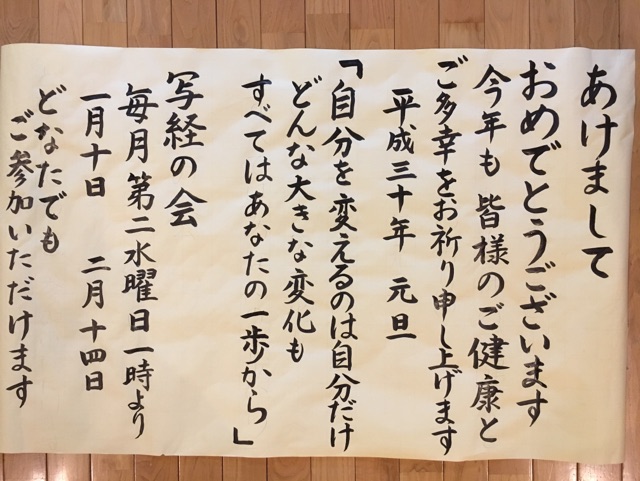 あけまして
おめでとうございます
今年も 皆様のご健康と
ご多幸をお祈り申し上げます
平成三十年 元旦
「自分を変えるのは自分だけ
どんな大きな変化も
すべてはあなたの一歩から」
写経の会
毎月第二水曜日一時より
一月十日 二月十四日
どなたでも
ご参加いただけます